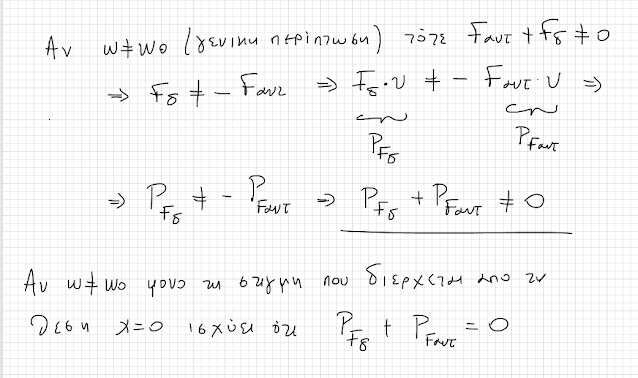 Αν ω≠ω₀ (γενικη περιπτωση) τότε Fαντ + Fδ ≠ 0
⇒ Fδ ≠ - Fαντ ⇒ Fδ·υ ≠ - Fαντ·υ ⇒
P_Fδ P_Fαντ
⇒ P_Fδ ≠ - P_Fαντ ⇒ P_Fδ + P_Fαντ ≠ 0
Αν ω≠ω₀ μονο τη στιγμη που διερχεται απο τη
θεση x=0 ισχύει ότι P_Fδ + P_Fαντ = 0